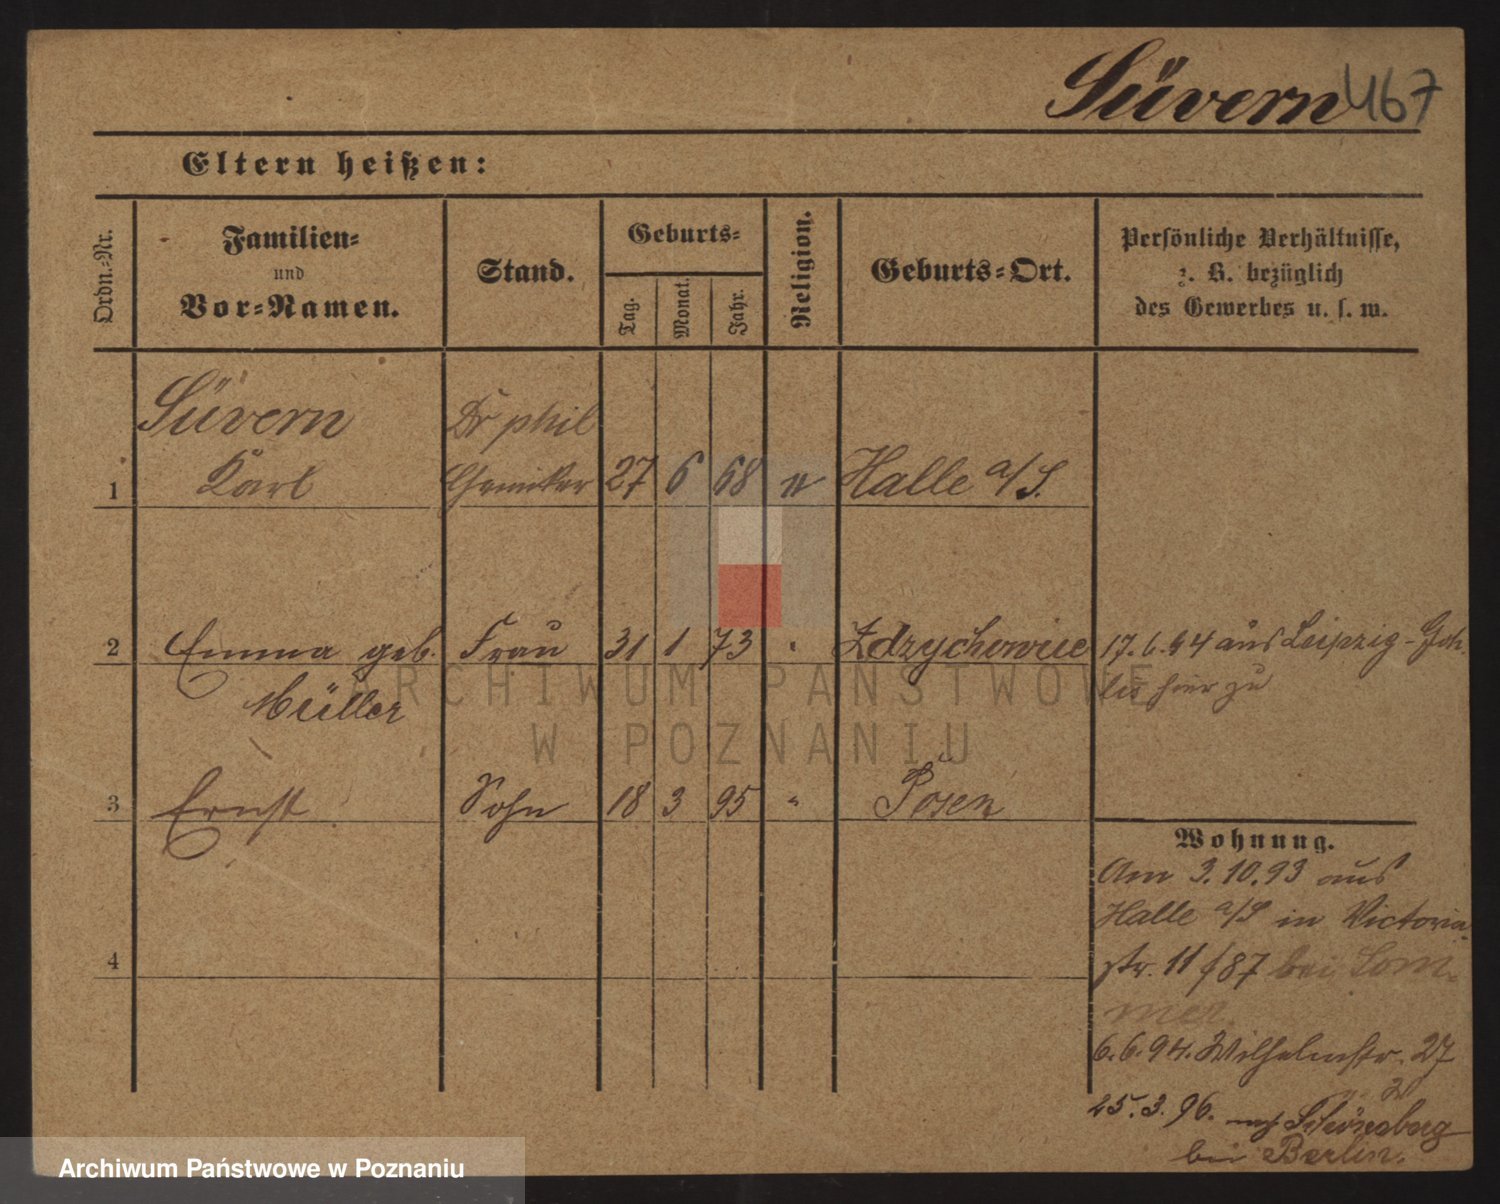 Süvern 467
Eltern heißen:
Ordn.-Nr.
Familien-
und
Vor-Namen.
Stand.
Geburts-
Tag.
Monat.
Jahr.
Religion.
Geburts-Ort.
Persönliche Verhältnisse,
z. B. bezüglich
des Gewerbes u. s. w.
Süvern Dr phil
1 Karl Chemiker 27 6 68 Halle a/S.
2 Emma geb. Frau 31 1 73 " Zdzychowice 17.6.94 aus Leipzig-Goh-
Müller lis hier zu
3 Ernst Sohn 18 3 95 " Posen
Wohnung.
Am 3.10.93 aus
Halle a/S in Victoria
4 str. 11 f 87 bei Som-
mer
6.6.94. Wilhelmstr. 27
25.3.96. nach Schöneberg
bei Berlin.
ARCHIWUM PAŃSTWOWE
W POZNANIU
Archiwum Państwowe w Poznaniu